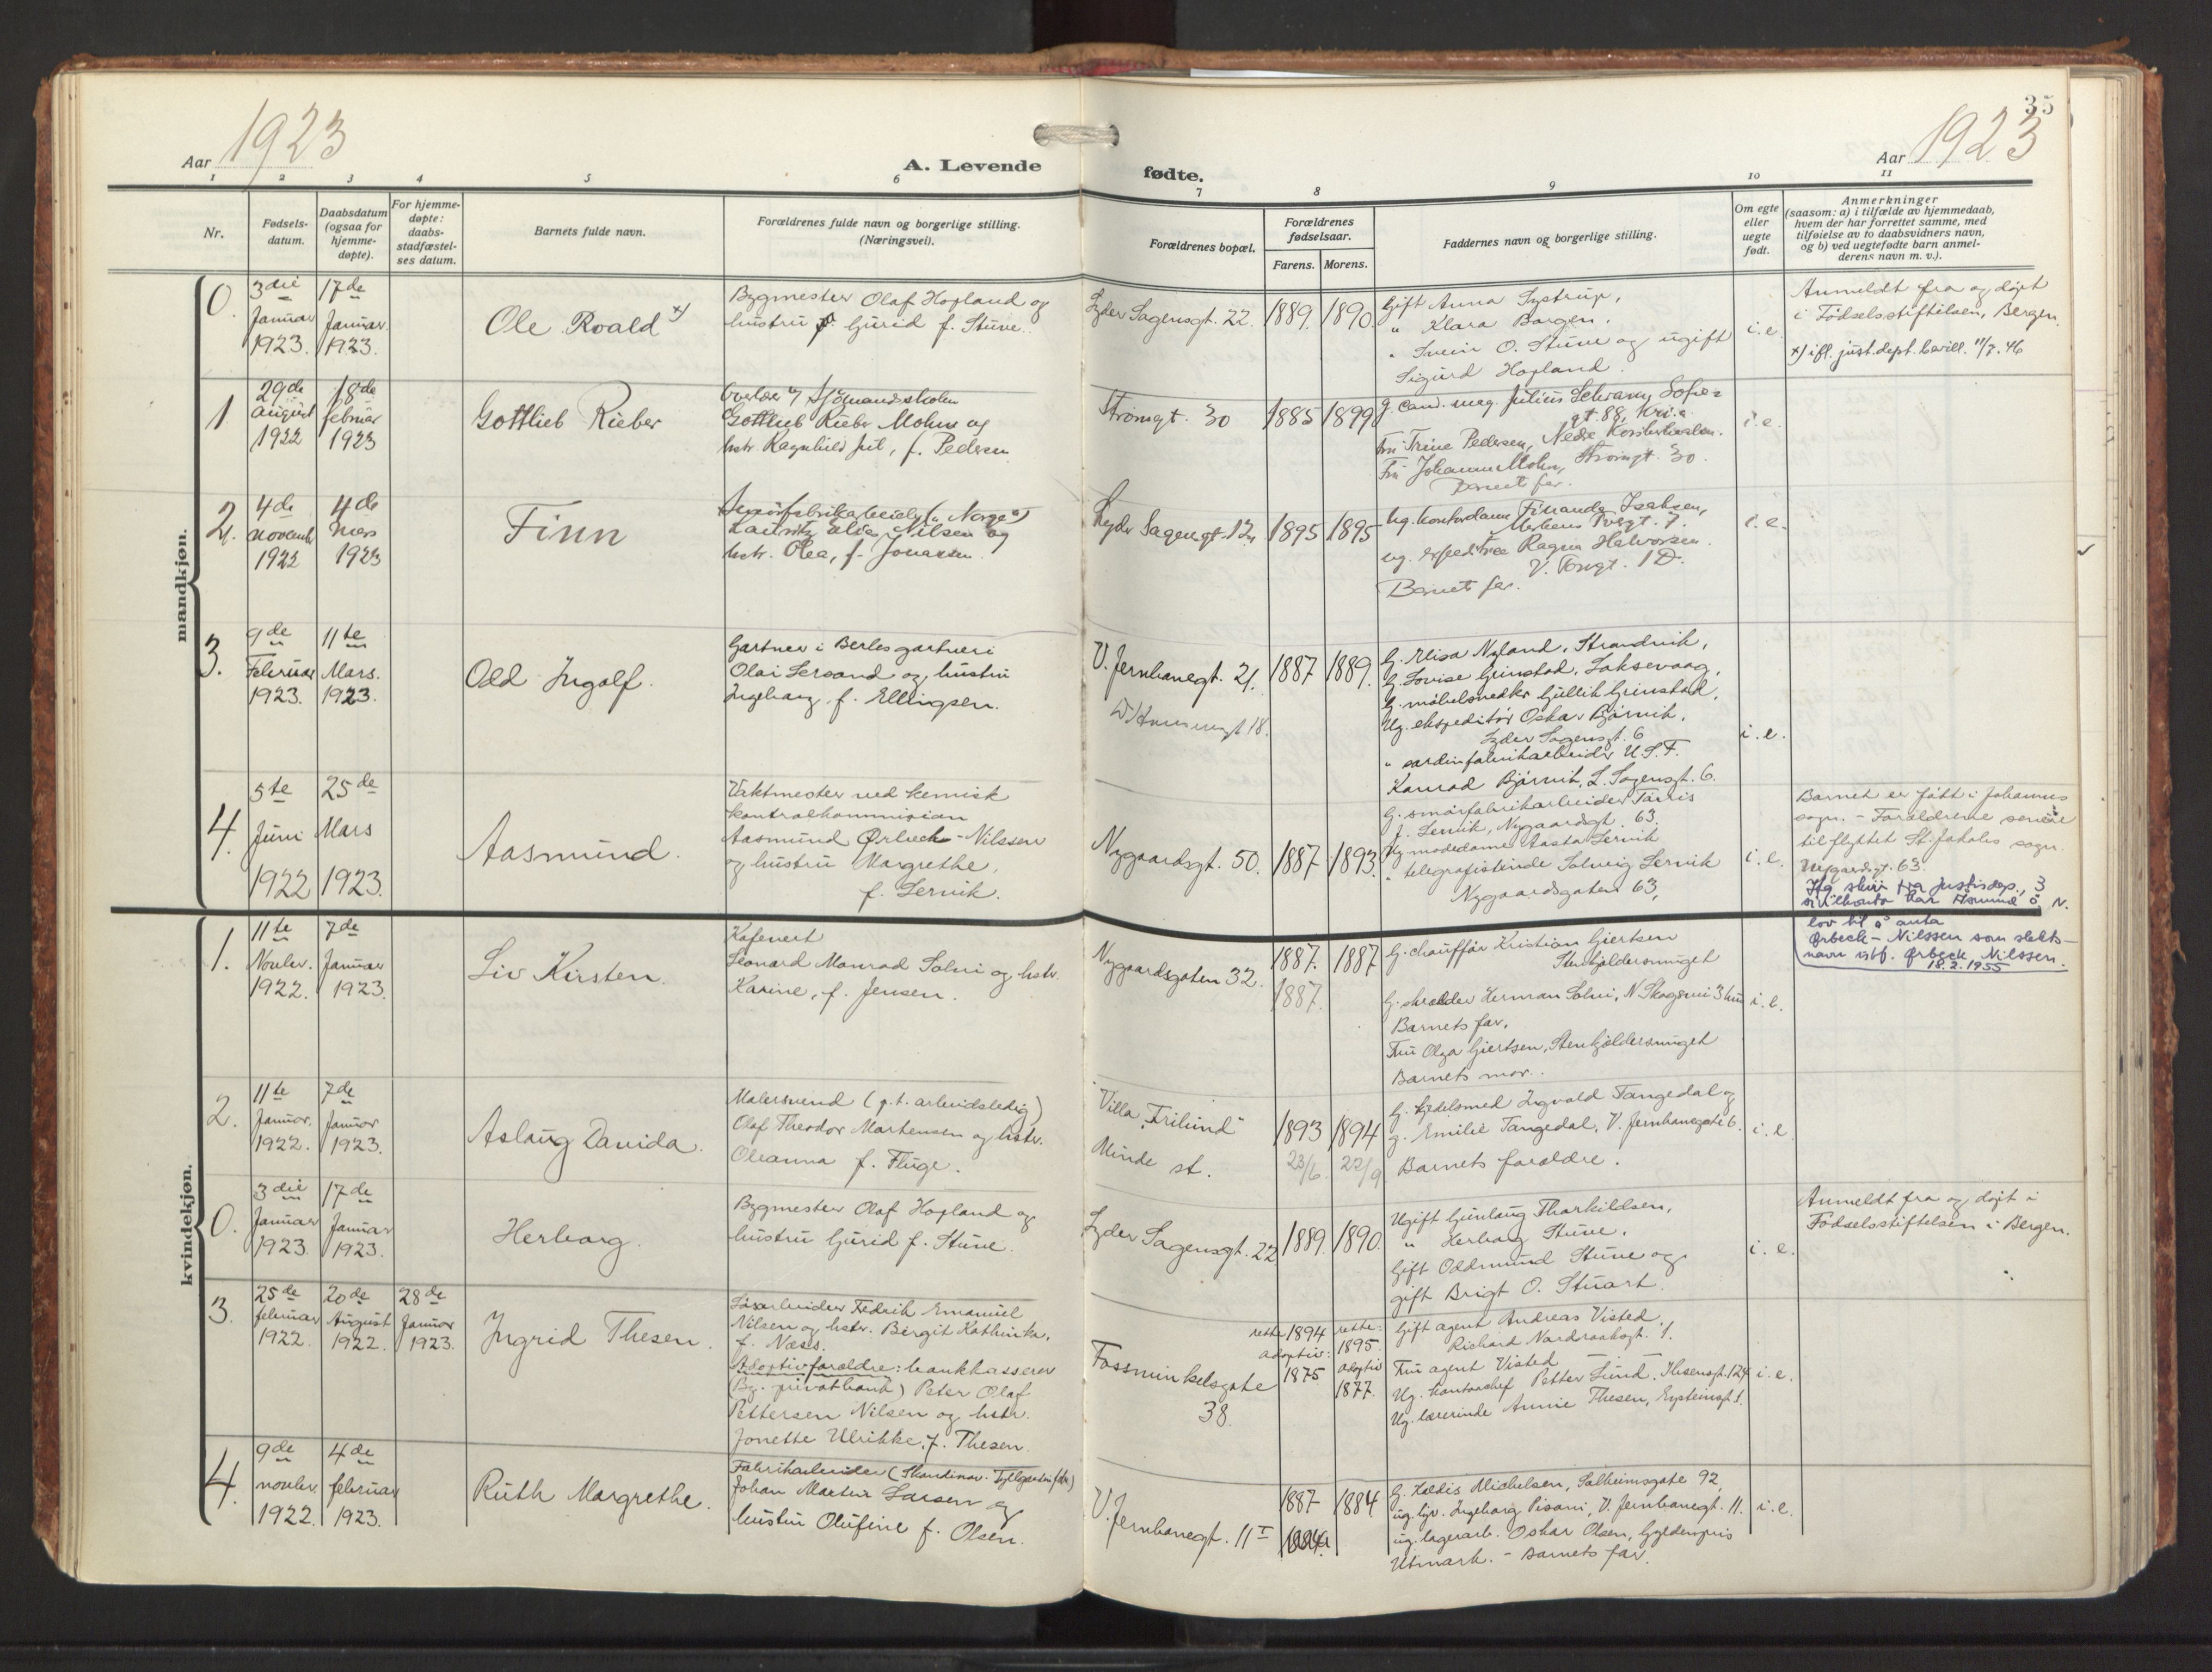 35
Aar 1923
A. Levende
fødte.
Aar 1923
1 2 3 4 5 6 7 8 9 10 11
Nr.
Fødsels-
datum.
Daabsdatum
(ogsaa for
hjemme-
døpte).
For hjemme-
døpte:
daabs-
stadfæstel-
ses datum.
Barnets fulde navn.
Forældrenes fulde navn og borgerlige stilling.
(Næringsvei).
Forældrenes bopæl.
Forældrenes
fødselsaar.
Farens. Morens.
Faddernes navn og borgerlige stilling.
Om egte
eller
uegte
født.
Anmerkninger
(saasom: a) i tilfælde av hjemmedaab,
hvem der har forrettet samme, med
tilføielse av to daabsvidners navn,
og b) ved uegtefødte barn anmel-
derens navn m. v.).
mandkjøn.
0.
3die
Januar
1923.
17de
Januar
1923.
Ole Roald x)
Bygmester Olaf Hopland og
hustru Gurid f. Stuve.
Lyder Sagensgt. 22.
1889. 1890.
Gift Anna Systrup,
" Klara Borgen,
" Svein O. Stuve og ugift
Sigurd Hopland.
i.e.
Anmeldt fra og døpt
i Fødselsstiftelsen, Bergen.
x) ifl. just.dept. bevill. 11/7.46
1
29de
august
1922
18de
februar
1923
Gottlieb Rieber
Sjømandsskolen
Gottlieb Rieber Mohn og
hstr. Ragnhild Jul, f. Pedersen
Strømgt. 30
1885 1899
g. cand. mag. Julius Schram, Sofies
gt. 88, Kr.ia.
fru Trine Pedersen, Nedre
Fru Johanne Mohn, Strømgt. 30.
Barnets far.
i.e.
2.
4de
novemb
1922
4de
Mars
1923
Finn
Lauritz Nilsen og
hstr. Olea, f. Jonassen.
Lyder Sagensgt. 12
1895 1895
ug. kontordame Isaksen,
ug. Ragna Halvorsen.
V. Torvgt. 1 D.
Barnets far.
i.e.
3.
9de
Februar
1923.
11te
Mars.
1923.
Odd Ingolf.
Gartner i Berles gartneri
Olai Lersand og hustru
Ingeborg f. Ellingsen.
V. Jernbanegt. 21.
1887 1889.
G. Elisa Nyland, Strandvik,
G. Lovise Grimstad, Laksevaag,
G. møbelsnedker Gullik Grimstad,
Ug. ekspeditør Oskar Bjørvik,
Lyder Sagensgt. 6
" sardinfabrikarbeider U.S.F.
Konrad Bjørvik, L. Sagensgt. 6.
i.e.
4.
5te
Juni
1922
25de
Mars
1923.
Aasmund.
Vaktmester ved kemisk
kontrolkommission
Aasmund Ørbeck-Nilssen
og hustru Margrethe,
f. Lervik.
Nygaardsgt. 50.
1887 1893.
G. smørfabrikarbeider Tørris
J. Lervik, Nygaardsgt. 63.
Ug. modedame Aasta Lervik
" telegrafistinde Solveig Lervik
Nygaardsgaten 63,
i.e.
Barnet er født i Johannes
sogn. - Forældrene senere
tilflyttet St. Jakobs sogn.
Nygaardsgt. 63.
Ifg. skriv fra Justisdep., 3
sivilkontor har Asmund Ø. N.
lov til å anta
Ørbeck-Nilssen som slekts-
navn istf. Ørbeck Nilssen.
18.2.1955
kvindekjøn.
1.
11te
Novbr.
1922.
7de
Januar
1923.
Liv Kirsten.
Kafevert
Leonard Monrad Solvi og hstr.
Karine, f. Jensen.
Nygaardsgaten 32.
1887. 1887
1887.
G. chauffør Kristian Gjertsen
Stenkjeldersmuget
G. skrædder Herman Solvi, N Skogevei 3
Barnets far.
Fru Olga Gjertsen, Stenkjeldersmuget
Barnets mor.
i.e.
2.
11te
Januar.
1922.
7de
Januar
1923.
Aslaug Davida.
Malersvend (p.t. arbeidsledig)
Olaf Theodor Martensen og hstr.
Oleanna f. Fluge.
Villa "Frilund"
Minde st.
1893 1894
23/6 22/9
G. kjedelsmed Ingvald Tangedal og
g. Emilie Tangedal, V. Jernbanegate 6.
Barnets forældre.
i.e.
0.
3die
Januar
1923.
17de
Januar
1923.
Herborg.
Bygmester Olaf Hopland og
hustru Gurid f. Stuve.
Lyder Sagensgt. 22
1889. 1890.
Ugift Gunlaug Tharkildsen,
" Herborg Stuve,
Gift Oddmund Stuve og
gift Brigt O. Stuart.
i.e.
Anmeldt fra og døpt i
Fødselsstiftelsen i Bergen.
3.
25de
februar
1922.
20de
August
1922.
28de
Januar
1923.
Ingrid Thesen.
Løsarbeider Fedrik Emanuel
Nilsen og hstr. Birgit Kathinka,
f. Næss.
Adoptivforældre: bankkasserer
(Bg. privatbank) Peter Olaf
Pettersen Nilsen og hstr.
Jonette Ulrikke, f. Thesen.
Fosswinkelsgate
38.
rette 1894
adoptiv:
1875.
rette:
1895
adoptiv
1877.
Gift agent Andreas Visted,
Richard Nordraaksgt. 1.
Fru agent Visted
Ug. kontorchef Petter Lund, Ibsensgt. 124
Ug. lærerinde Annie Thesen, Eysteinsgt. 1.
i.e.
4.
9de
novbr.
1922.
4de
februar
1923.
Ruth Margrethe.
Fabrikarbeider (Skandinav.
Johan Martin Larsen og
hustru Olufine f. Olsen.
V. Jernbanegt. 11 I
1887 1884.
G. Haldis Michelsen, Solheimsgate 92,
ug. Ingeborg Pisani, V. Jernbanegt. 11.
ug. lagerarb. Oskar Olsen, Gyldenpris
Utmark. - Barnets far.
i.e.